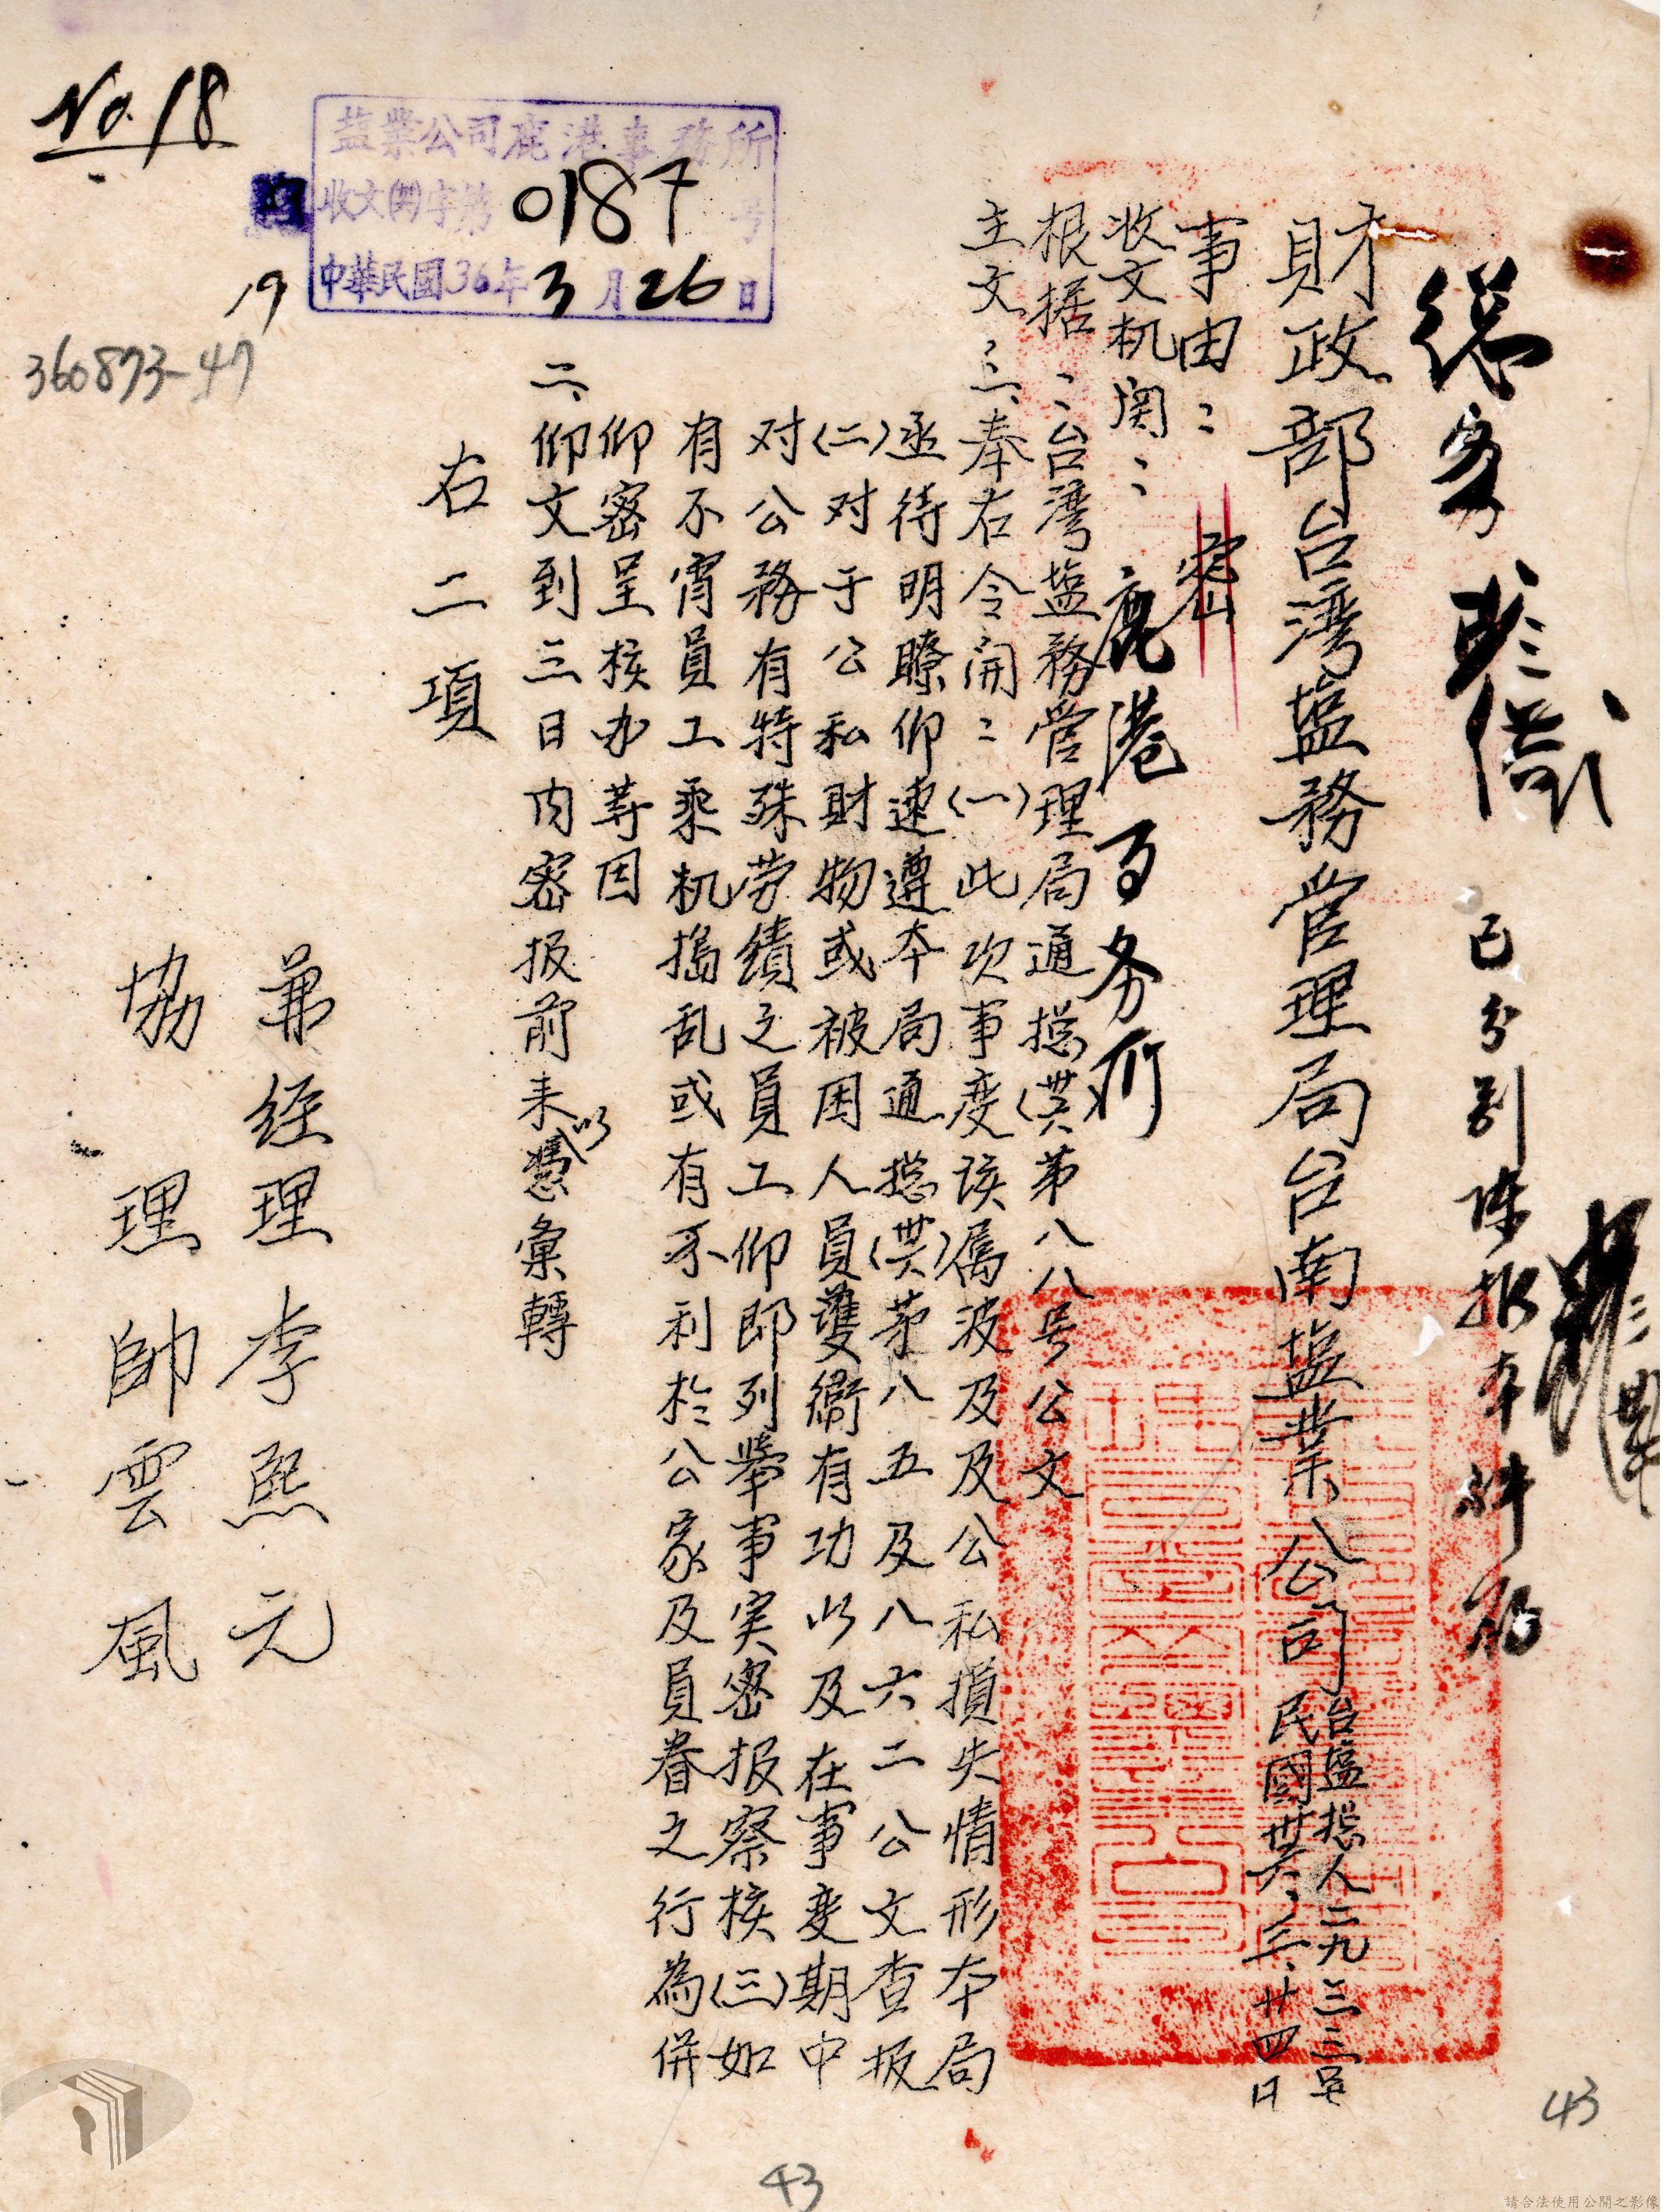 已分別陳報本件存
財政部台湾塩務管理局台南塩業公司
台塩捴人二九三三号
民國卅六、三、廿四日
事由：密
收文机関：鹿港事务所
根据：台湾塩務管理局通捴(卅六)第八八号公文
主文：三、奉右令開：(一)此次事变该属波及及公私損失情形本局
丞待明瞭仰速遵本局通捴(卅六)第八五及八六二公文查报
(二)对于公私財物或被困人員護衛有功以及在事变期中
对公務有特殊劳績之員工仰即列舉事実密报察核(三)如
有不宵員工乘机搗乱或有不利於公家及員眷之行為併
仰密呈核办等因
二、仰文到三日内密报前来以憑彙轉
右二項
兼經理李熙元
協理帥雲風
No.18
塩業公司鹿港事務所
收文(卅六)字第0187号
中華民國36年3月26日
19
360873-47
43
43
請合法使用公開之影像